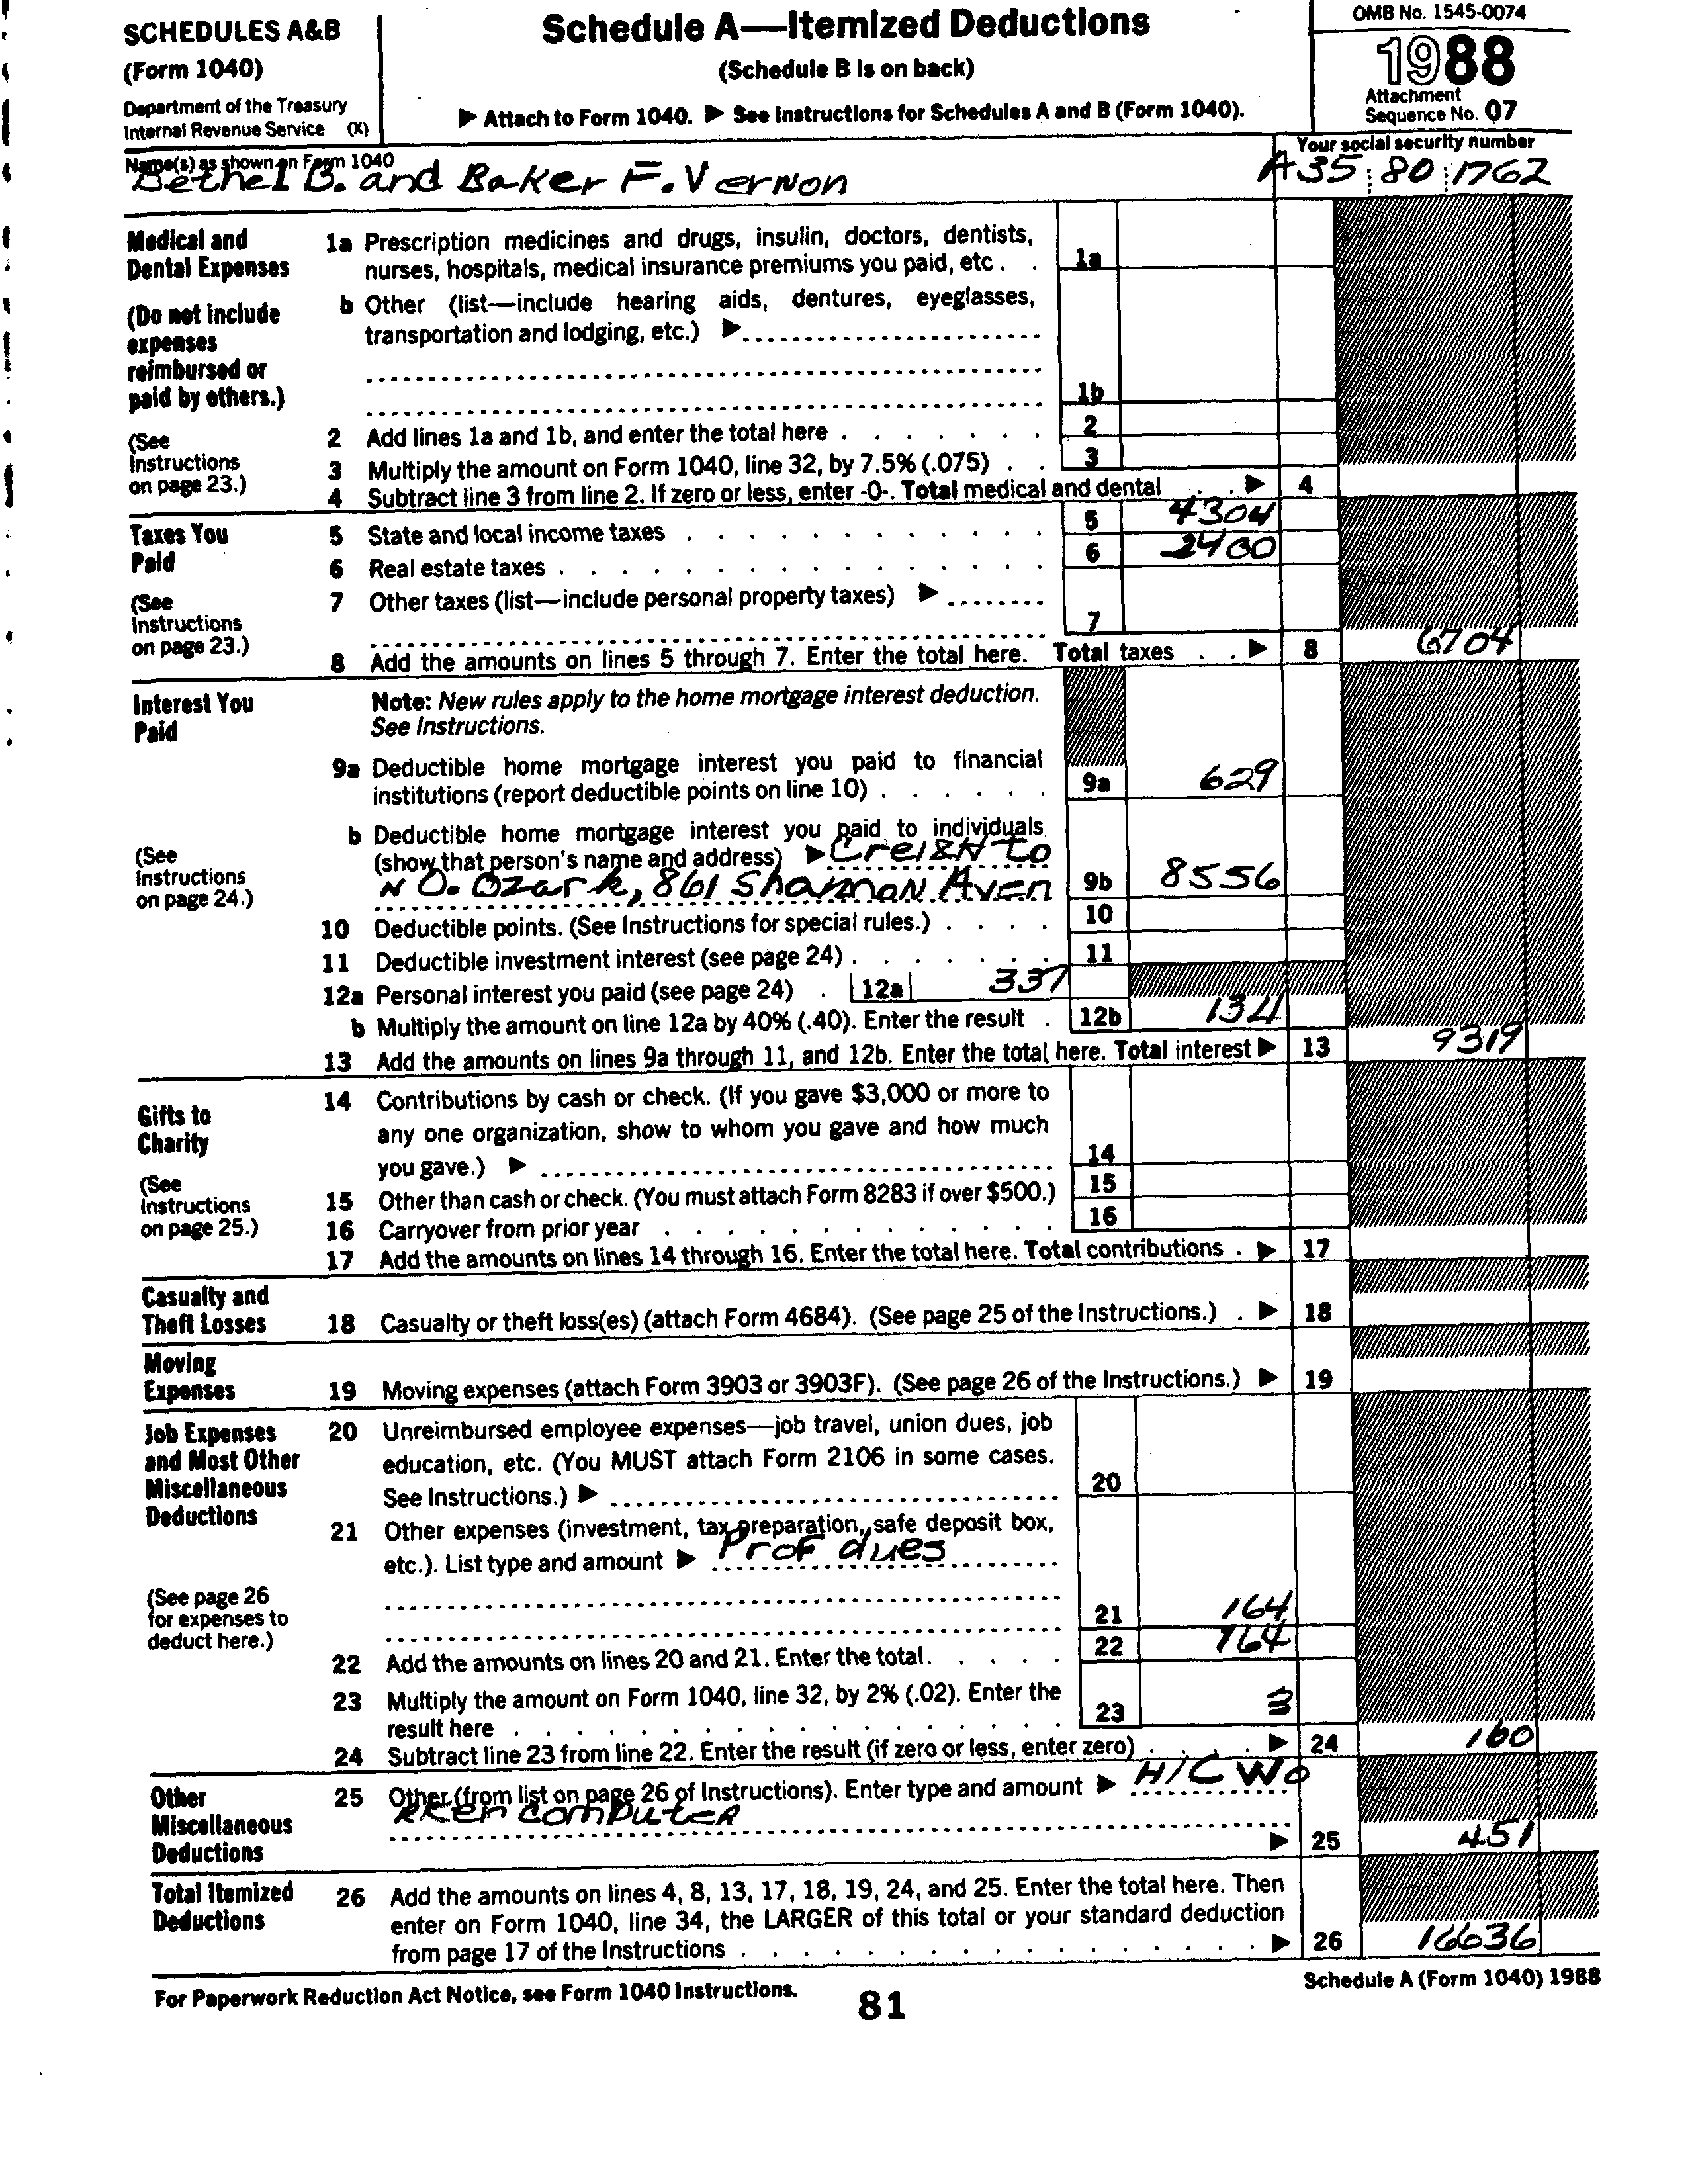 SCHEDULES A&B
(Form 1040)
Department of the Treasury
Internal Revenue Service (X)
Schedule A—Itemized Deductions
(Schedule B is on back)
▶ Attach to Form 1040. ▶ See Instructions for Schedules A and B (Form 1040).
OMB No. 1545-0074
1988
Attachment
Sequence No. 07
Name(s) as shown on Form 1040
Bethel B. and Baker F. Vernon
Your social security number
A35 80 1762
Medical and
Dental Expenses
(Do not include
expenses
reimbursed or
paid by others.)
(See
Instructions
on page 23.)
1a Prescription medicines and drugs, insulin, doctors, dentists,
nurses, hospitals, medical insurance premiums you paid, etc . . 1a
b Other (list—include hearing aids, dentures, eyeglasses,
transportation and lodging, etc.) ▶
1b
2 Add lines 1a and 1b, and enter the total here . . . . . . . 2
3 Multiply the amount on Form 1040, line 32, by 7.5% (.075) . . 3
4 Subtract line 3 from line 2. If zero or less, enter -0-. Total medical and dental . . ▶ 4
Taxes You
Paid
(See
Instructions
on page 23.)
5 State and local income taxes . . . . . . . . . . . . 5 4304
6 Real estate taxes . . . . . . . . . . . . . . 6 2400
7 Other taxes (list—include personal property taxes) ▶
7
8 Add the amounts on lines 5 through 7. Enter the total here. Total taxes . . ▶ 8 6704
Interest You
Paid
(See
Instructions
on page 24.)
Note: New rules apply to the home mortgage interest deduction.
See Instructions.
9a Deductible home mortgage interest you paid to financial
institutions (report deductible points on line 10) . . . . . . 9a 629
b Deductible home mortgage interest you paid to individuals
(show that person's name and address) ▶ Creighto
n O. Ozark, 861 Shannon Aven 9b 8556
10 Deductible points. (See Instructions for special rules.) . . . . 10
11 Deductible investment interest (see page 24) . . . . . . . 11
12a Personal interest you paid (see page 24) . 12a 337
b Multiply the amount on line 12a by 40% (.40). Enter the result . 12b 134
13 Add the amounts on lines 9a through 11, and 12b. Enter the total here. Total interest ▶ 13 9319
Gifts to
Charity
(See
Instructions
on page 25.)
14 Contributions by cash or check. (If you gave $3,000 or more to
any one organization, show to whom you gave and how much
you gave.) ▶ 14
15 Other than cash or check. (You must attach Form 8283 if over $500.) 15
16 Carryover from prior year . . . . . . . . . . . . . 16
17 Add the amounts on lines 14 through 16. Enter the total here. Total contributions . ▶ 17
Casualty and
Theft Losses
18 Casualty or theft loss(es) (attach Form 4684). (See page 25 of the Instructions.) . ▶ 18
Moving
Expenses
19 Moving expenses (attach Form 3903 or 3903F). (See page 26 of the Instructions.) ▶ 19
Job Expenses
and Most Other
Miscellaneous
Deductions
(See page 26
for expenses to
deduct here.)
20 Unreimbursed employee expenses—job travel, union dues, job
education, etc. (You MUST attach Form 2106 in some cases.
See Instructions.) ▶ 20
21 Other expenses (investment, tax preparation, safe deposit box,
etc.). List type and amount ▶ Prof dues
21 164
22 Add the amounts on lines 20 and 21. Enter the total. . . . . . 22 164
23 Multiply the amount on Form 1040, line 32, by 2% (.02). Enter the
result here . . . . . . . . . . . . . . . . . 23 3
24 Subtract line 23 from line 22. Enter the result (if zero or less, enter zero) . . . . ▶ 24 160
Other
Miscellaneous
Deductions
25 Other (from list on page 26 of Instructions). Enter type and amount ▶ H/C Wo
rker computer
▶ 25 451
Total Itemized
Deductions
26 Add the amounts on lines 4, 8, 13, 17, 18, 19, 24, and 25. Enter the total here. Then
enter on Form 1040, line 34, the LARGER of this total or your standard deduction
from page 17 of the Instructions . . . . . . . . . . . . . . . . ▶ 26 16636
For Paperwork Reduction Act Notice, see Form 1040 Instructions.
81
Schedule A (Form 1040) 1988